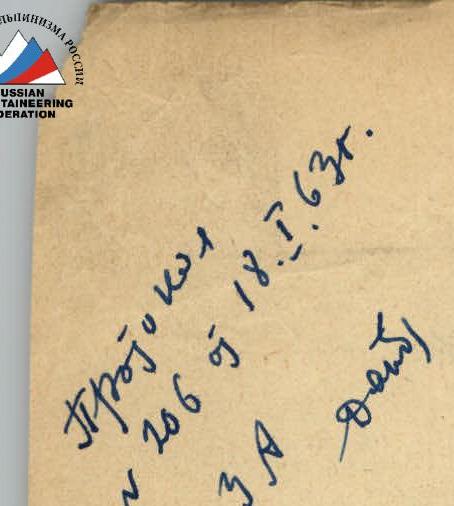 ЛЬПИНИЗМА РОССИИ
USSIAN
NTAINEERING
DERATION
Протокол
N 206 от 18.I.63г.
3А